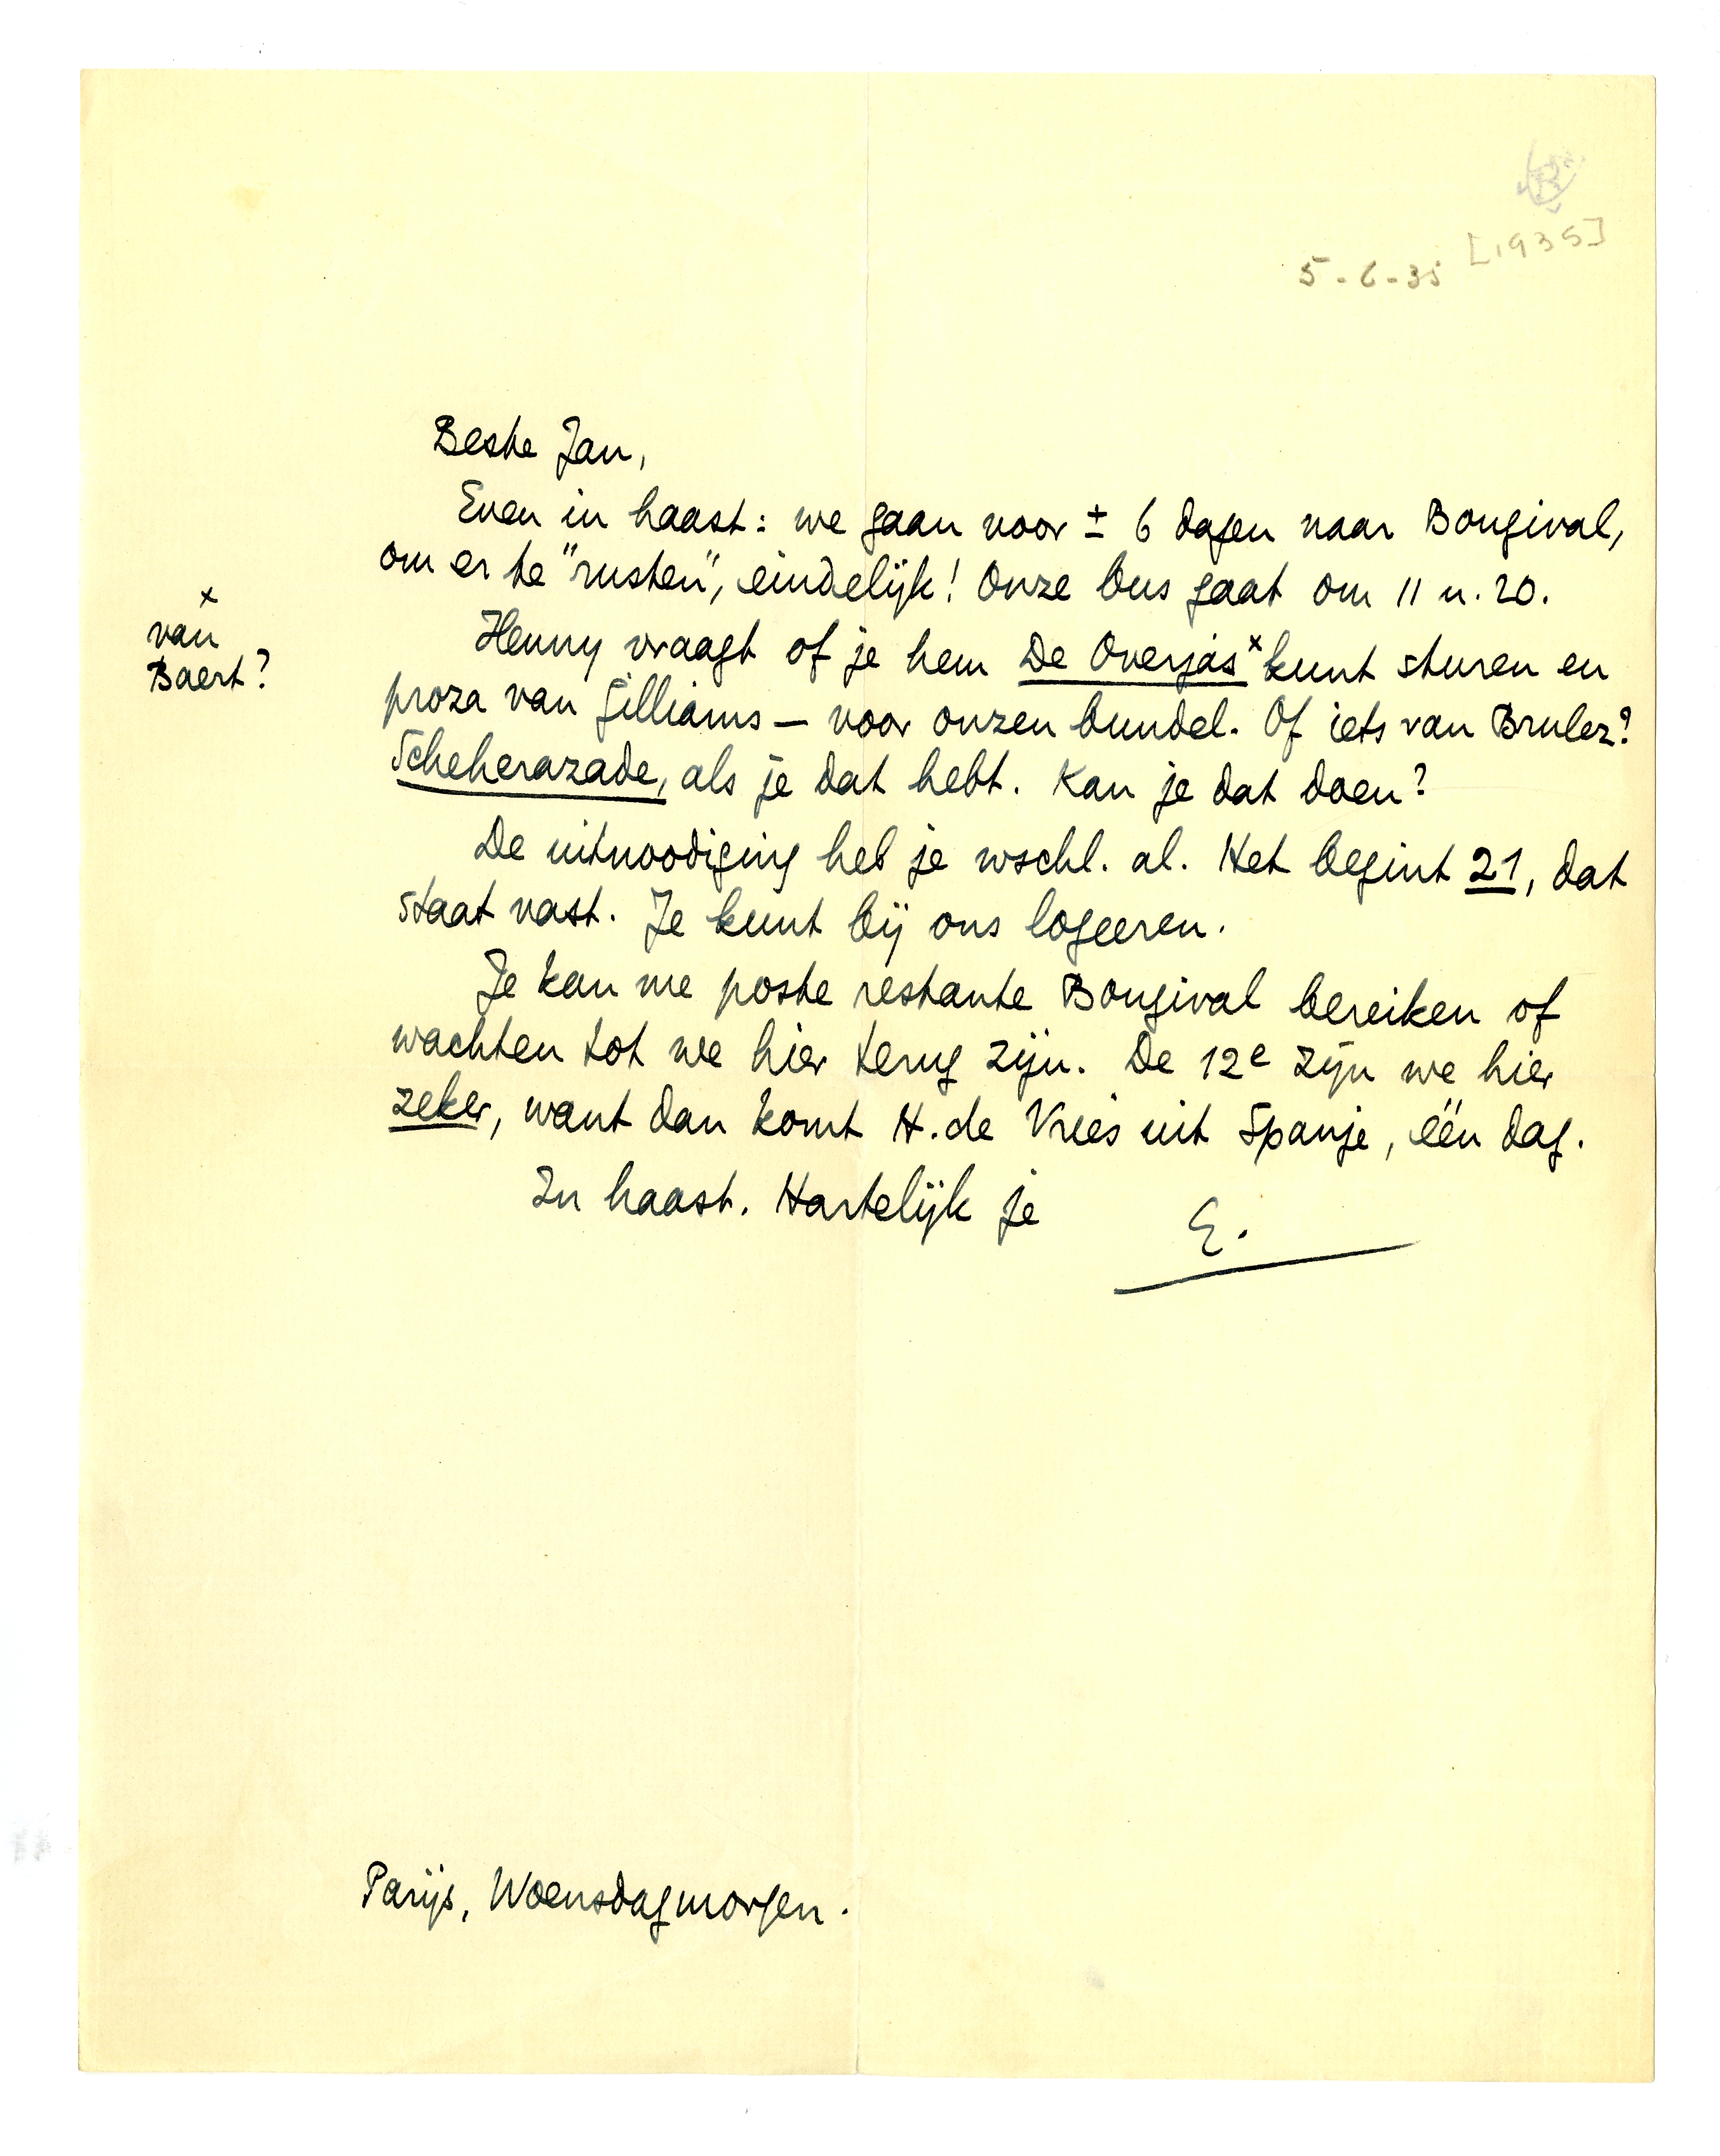 [1935]
5-6-35
Beste Jan,
Even in haast: we gaan voor ± 6 dagen naar Bougival,
om er te "rusten", eindelijk! Onze bus gaat om 11 u. 20.
Henny vraagt of je hem De Overjas x kunt sturen en
x
van
Baert?
proza van Gilliams — voor onzen bundel. Of iets van Brulez?
Scheherazade, als je dat hebt. Kan je dat doen?
De uitnoodiging heb je wschl. al. Het begint 21, dat
staat vast. Je kunt bij ons logeeren.
Je kan me poste restante Bougival bereiken of
wachten tot we hier terug zijn. De 12e zijn we hier
zeker, want dan komt H. de Vries uit Spanje, één dag.
In haast. Hartelijk je
E.
Parijs, Woensdagmorgen.